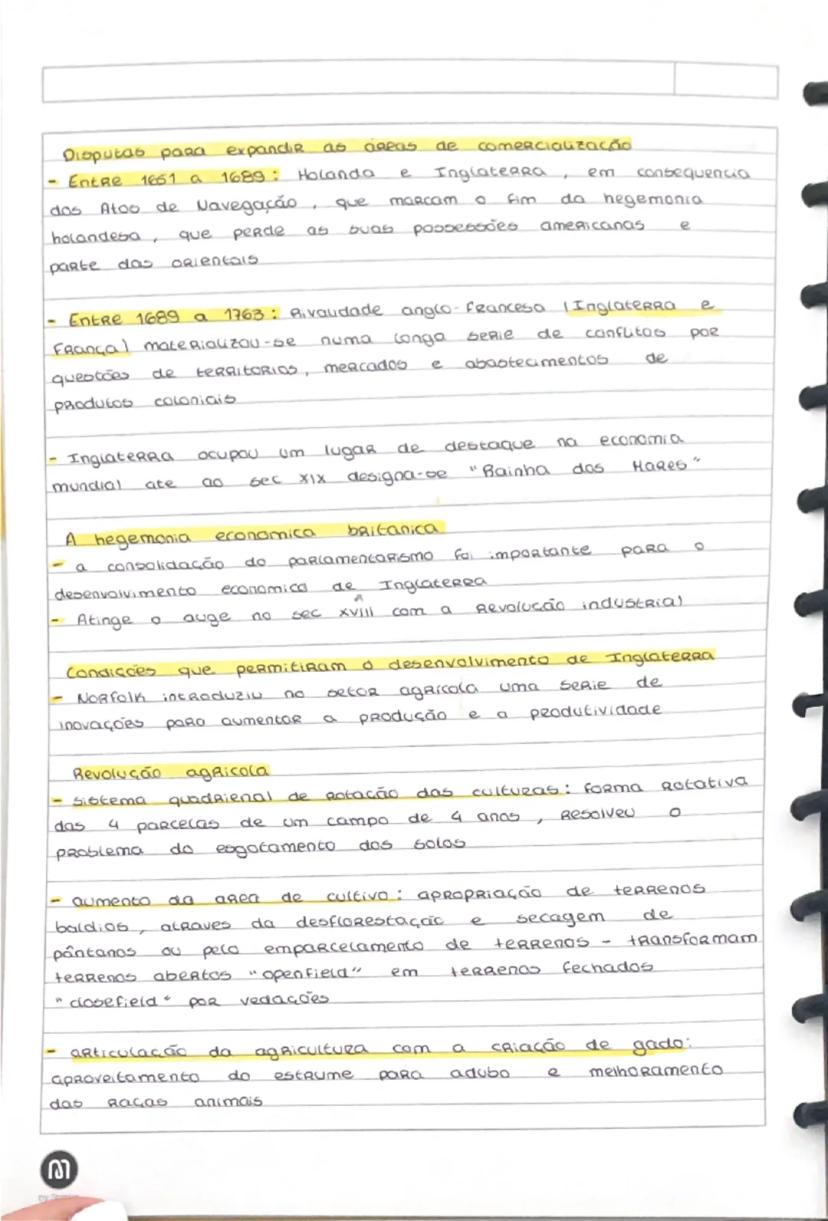 Disputas para expandir as áreas de comercialização
- Entre 1651 a 1689: Holanda e Inglaterra, em consequencia
dos Atos de Navegação, que marcam o fim da hegemonia
holandesa, que perde as suas possessões americanas e
parte das orientais
- Entre 1689 a 1763: Rivalidade anglo-francesa (Inglaterra e
França) materializou-se numa longa serie de conflitos por
questões de territorios, mercados e abastecimentos de
produtos coloniais
- Inglaterra ocupou um lugar de destaque na economia
mundial ate ao sec XIX designa-se "Rainha dos Mares"
A hegemonia economica britanica
- a consolidação do parlamentarismo foi importante para o
desenvolvimento economico de Inglaterra
- Atinge o auge no sec XVIII com a Revolucão industrial
Condicões que permitiram o desenvolvimento de Inglaterra
- Norfolk introduziu no setor agricola uma serie de
inovações para aumentar a produção e a produtividade
Revolução agricola
- sistema quadrienal de rotação das culturas: forma rotativa
das 4 parcelas de um campo de 4 anos, resolveu o
problema do esgotamento dos solos
- aumento da area de cultivo: apropriação de terrenos
baldios, atraves da desflorestação e secagem de
pântanos ou pelo emparcelamento de terrenos - transformam
terrenos abertos "openfield" em terrenos fechados
"closefield" por vedações
- articulação da agricultura com a criação de gado:
aproveitamento do estrume para adubo e melhoramento
das racas animais